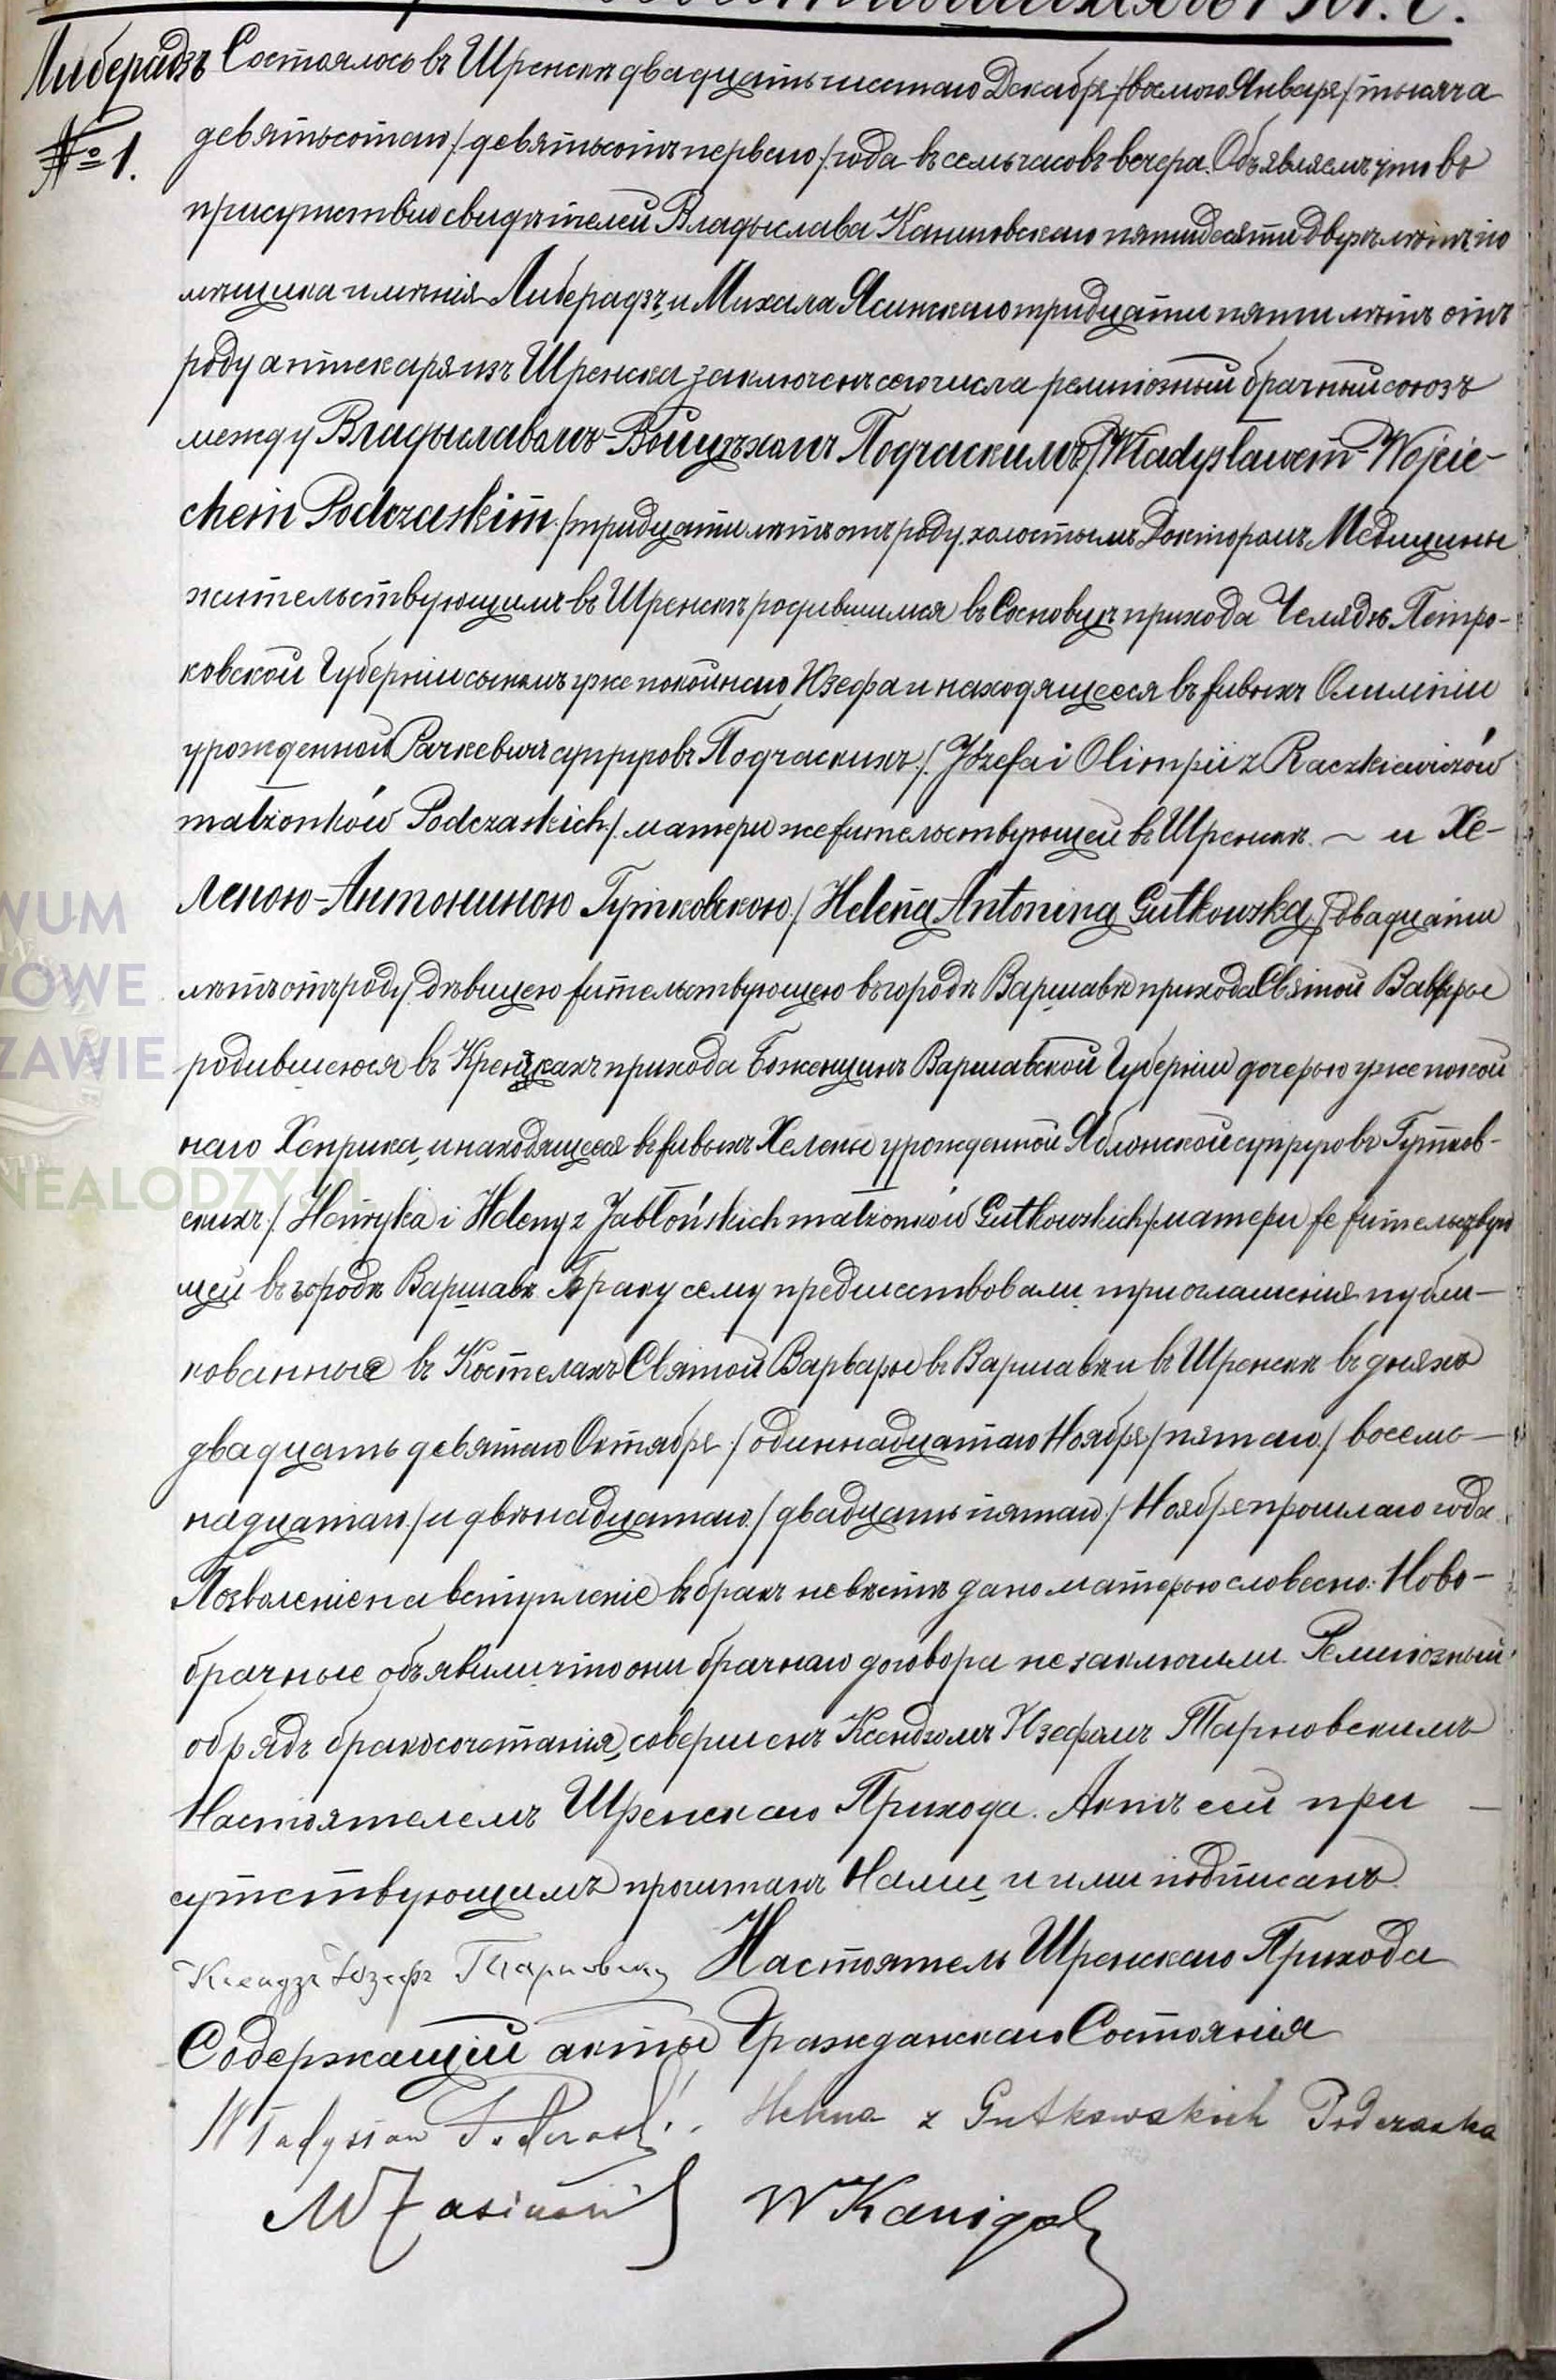 Либерадзъ
№ 1.
Состоялось въ Шренскѣ двадцать шестаго Декабря /восьмаго Января/ тысяча
девятьсотаго /девятьсотъ перваго/ года въ семь часовъ вечера. Объявляемъ что въ
присутствiи свидѣтелей Владыслава Каниговскаго пятидесяти двухъ лѣтъ по
мѣщика имѣнiя Либерадзъ, и Михала Ясинскаго тридцати пяти лѣтъ отъ
роду аптекаря изъ Шренска, заключенъ сего числа религiозный брачный союзъ
между Владыславомъ-Войцѣхомъ Подчаскимъ /Władysławem-Wojcie-
chem Podczaskim./ тридцати лѣтъ отъ роду, холостымъ Докторомъ Медицины
жительствующимъ въ Шренскѣ родившимся въ Сосновцѣ прихода Челядзь Петро-
ковской Губернiи сыномъ уже покойнаго Юзефа и находящееся въ живыхъ Олимпiи
урожденной Рачкевичъ супруговъ Подчаскихъ /. Józefa i Olimpii z Raczkiewiczów
małżonków Podczaskich./ матери же жительствующей въ Шренскѣ. ~ и Хе-
леною-Антониною Гутковскою./ Heleną-Antoniną Gutkowską./ двадцати
лѣтъ отъ роду, дѣвицею жительствующею въ городѣ Варшавѣ прихода Святой Варвары
родившеюся въ прихода Варшавской Губернiи дочерью уже покой
наго Хенрика, и находящееся въ живыхъ Хелены урожденной Яблонской супруговъ Гутков-
скихъ./ Henryka i Heleny z Jabłońskich małżonków Gutkowskich/ матери же жительствую
щей въ городѣ Варшавѣ. Браку сему предшествовали три оглашенiя публи-
кованныя въ Костелахъ Святой Варвары въ Варшавѣ и въ Шренскѣ въ дняхъ
двадцать девятаго Октября /одиннадцатаго Ноября/ пятаго./ восем-
надцатаго./ и двѣнадцатаго./ двадцать пятаго./ Ноября прошлаго года.
Позволенiе на вступленiе въ бракъ невѣстѣ дано матерью словесно. Ново-
брачные объявили что они брачнаго договора не заключили. Религiозный
обрядъ бракосочетанiя, совершенъ Ксендзомъ Юзефомъ Тарновскимъ
Настоятелемъ Шренскаго Прихода. Актъ сей при
сутствующимъ прочитанъ Нами, и ими подписанъ.
Ксендзъ Юзефъ Тарновскiй Настоятель Шренскаго Прихода
Содержащiй акты Гражданскаго Состоянiя
Władysław Podczaski. Helena z Gutkowskich Podczaska
M Jasiński W Kanigowski